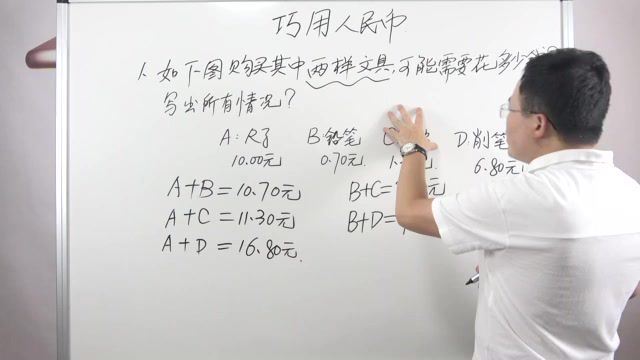 巧用人民币
1. 如下图购买其中两样文具,可能需要花多少
写出所有情况?
A:尺子 B:铅笔 C D:削笔
10.00元 0.70元 1. 元 6.80元
A+B=10.70元 B+C= 元
A+C=11.30元 B+D=
A+D=16.80元.